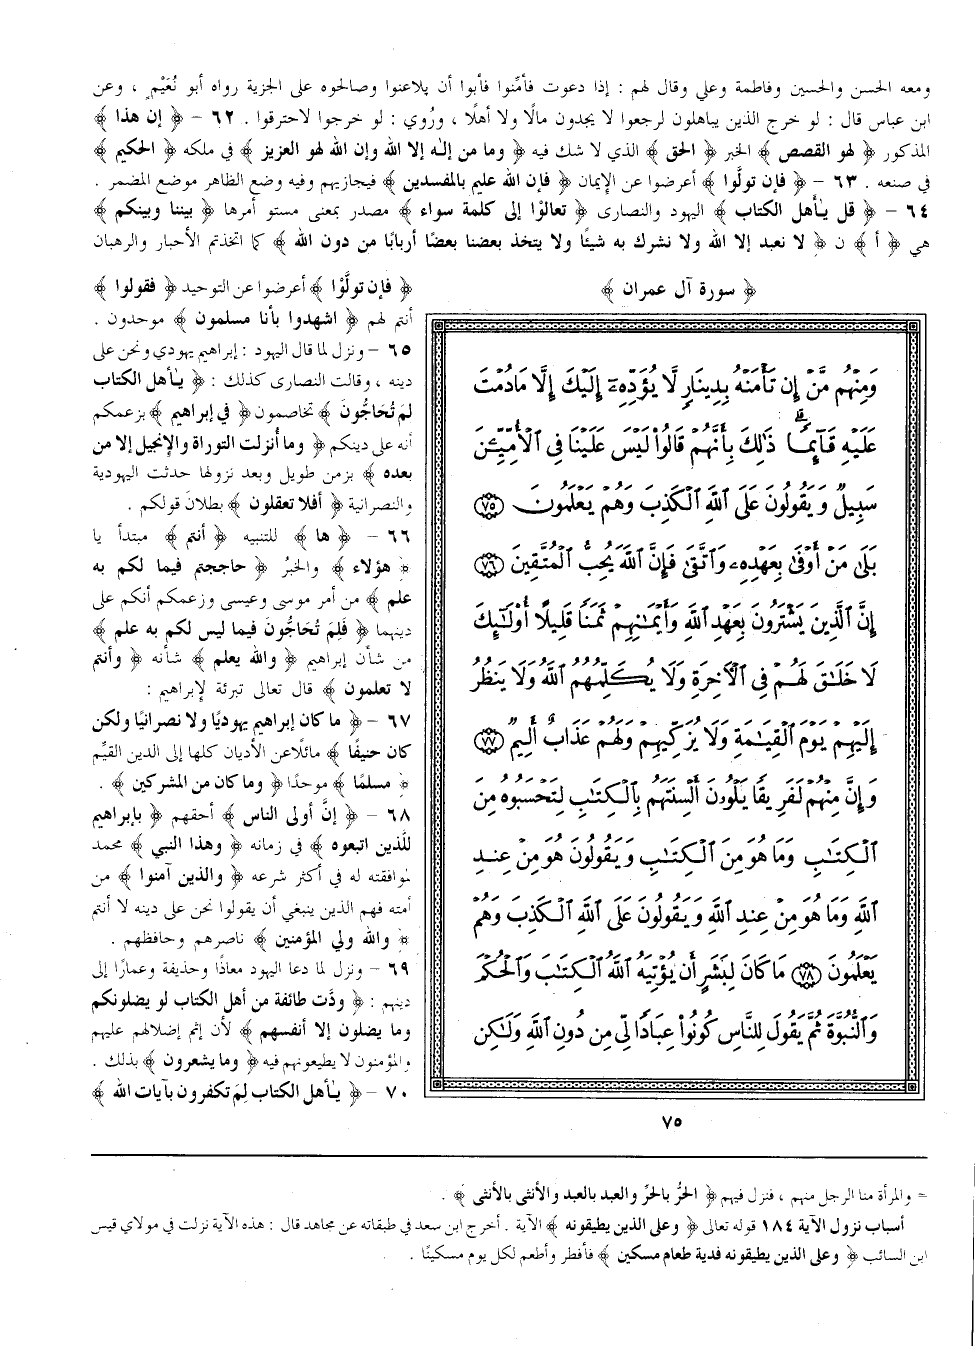 ومعه الحسن والحسين وفاطمة وعلي وقال لهم : إذا دعوت فأمِّنوا فأبوا أن يلاعنوا وصالحوه على الجزية رواه أبو نُعَيْم ، وعن
ابن عباس قال : لو خرج الذين يباهلون لرجعوا لا يجدون مالًا ولا أهلًا ، ورُوي : لو خرجوا لاحترقوا . ٦٢ – ﴿ إن هذا ﴾
المذكور ﴿ لهو القصص ﴾ الخبر ﴿ الحق ﴾ الذي لا شك فيه ﴿ وما من إلٰه إلا الله وإن الله لهو العزيز ﴾ في ملكه ﴿ الحكيم ﴾
في صنعه . ٦٣ – ﴿ فإن تولَّوا ﴾ أعرضوا عن الإيمان ﴿ فإن الله عليم بالمفسدين ﴾ فيجازيهم وفيه وضع الظاهر موضع المضمر .
٦٤ – ﴿ قل يٰأهل الكتاب ﴾ اليهود والنصارى ﴿ تعالوْا إلى كلمة سواء ﴾ مصدر بمعنى مستو أمرها ﴿ بيننا وبينكم ﴾
هي ﴿ أ ﴾ ن ﴿ لا نعبد إلا الله ولا نشرك به شيئًا ولا يتخذ بعضنا بعضًا أربابًا من دون الله ﴾ كما اتخذتم الأحبار والرهبان
﴿ فإن تولَّوْا ﴾ أعرضوا عن التوحيد ﴿ فقولوا ﴾
أنتم لهم ﴿ اشهدوا بأنا مسلمون ﴾ موحدون .
٦٥ – ونزل لما قال اليهود : إبراهيم يهودي ونحن على
دينه ، وقالت النصارى كذلك : ﴿ يٰأهل الكتاب
لمَ تُحَاجُّونَ ﴾ تخاصمون ﴿ في إبراهيم ﴾ بزعمكم
أنه على دينكم ﴿ وما أنزلت التوراة والإنجيل إلا من
بعده ﴾ بزمن طويل وبعد نزولها حدثت اليهودية
والنصرانية ﴿ أفلا تعقلون ﴾ بطلان قولكم .
٦٦ – ﴿ ها ﴾ للتنبيه ﴿ أنتم ﴾ مبتدأ يا
﴿ هؤلاء ﴾ والخبرُ ﴿ حاججتم فيما لكم به
علم ﴾ من أمر موسى وعيسى وزعمكم أنكم على
دينهما ﴿ فَلِمَ تُحَاجُّونَ فيما ليس لكم به علم ﴾
من شأن إبراهيم ﴿ والله يعلم ﴾ شأنه ﴿ وأنتم
لا تعلمون ﴾ قال تعالى تبرئة لإبراهيم :
٦٧ – ﴿ ما كان إبراهيم يهوديًا ولا نصرانيًا ولكن
كان حنيفًا ﴾ مائلًا عن الأديان كلها إلى الدين القيِّم
﴿ مسلمًا ﴾ موحدًا ﴿ وما كان من المشركين ﴾ .
٦٨ – ﴿ إنَّ أولى الناس ﴾ أحقهم ﴿ بإبراهيم
للَّذين اتبعوه ﴾ في زمانه ﴿ وهذا النبي ﴾ محمد
لموافقته له في أكثر شرعه ﴿ والذين آمنوا ﴾ من
أمته فهم الذين ينبغي أن يقولوا نحن على دينه لا أنتم
﴿ والله ولي المؤمنين ﴾ ناصرهم وحافظهم .
٦٩ – ونزل لما دعا اليهود معاذًا وحذيفة وعمارًا إلى
دينهم : ﴿ ودَّت طائفة من أهل الكتاب لو يضلونكم
وما يضلون إلا أنفسهم ﴾ لأن إثم إضلالهم عليهم
والمؤمنون لا يطيعونهم فيه ﴿ وما يشعرون ﴾ بذلك .
٧٠ – ﴿ يٰأهل الكتاب لِمَ تكفرون بآيات الله ﴾
﴿ سورة آل عمران ﴾
وَمِنْهُم مَّنْ إِن تَأْمَنْهُ بِدِينَارٍ لَّا يُؤَدِّهِۦٓ إِلَيْكَ إِلَّا مَادُمْتَ
عَلَيْهِ قَآئِمًا ۗ ذَٰلِكَ بِأَنَّهُمْ قَالُوا۟ لَيْسَ عَلَيْنَا فِى ٱلْأُمِّيِّـۧنَ
سَبِيلٌ وَيَقُولُونَ عَلَى ٱللَّهِ ٱلْكَذِبَ وَهُمْ يَعْلَمُونَ ﴿٧٥﴾
بَلَىٰ مَنْ أَوْفَىٰ بِعَهْدِهِۦ وَٱتَّقَىٰ فَإِنَّ ٱللَّهَ يُحِبُّ ٱلْمُتَّقِينَ ﴿٧٦﴾
إِنَّ ٱلَّذِينَ يَشْتَرُونَ بِعَهْدِ ٱللَّهِ وَأَيْمَـٰنِهِمْ ثَمَنًا قَلِيلًا أُو۟لَـٰٓئِكَ
لَا خَلَـٰقَ لَهُمْ فِى ٱلْـَٔاخِرَةِ وَلَا يُكَلِّمُهُمُ ٱللَّهُ وَلَا يَنظُرُ
إِلَيْهِمْ يَوْمَ ٱلْقِيَـٰمَةِ وَلَا يُزَكِّيهِمْ وَلَهُمْ عَذَابٌ أَلِيمٌ ﴿٧٧﴾
وَإِنَّ مِنْهُمْ لَفَرِيقًا يَلْوُۥنَ أَلْسِنَتَهُم بِٱلْكِتَـٰبِ لِتَحْسَبُوهُ مِنَ
ٱلْكِتَـٰبِ وَمَا هُوَ مِنَ ٱلْكِتَـٰبِ وَيَقُولُونَ هُوَ مِنْ عِندِ
ٱللَّهِ وَمَا هُوَ مِنْ عِندِ ٱللَّهِ وَيَقُولُونَ عَلَى ٱللَّهِ ٱلْكَذِبَ وَهُمْ
يَعْلَمُونَ ﴿٧٨﴾ مَا كَانَ لِبَشَرٍ أَن يُؤْتِيَهُ ٱللَّهُ ٱلْكِتَـٰبَ وَٱلْحُكْمَ
وَٱلنُّبُوَّةَ ثُمَّ يَقُولَ لِلنَّاسِ كُونُوا۟ عِبَادًا لِّى مِن دُونِ ٱللَّهِ وَلَـٰكِن
٧٥
= والمرأة منا الرجل منهم ، فنزل فيهم ﴿ الحُرُّ بالحرِّ والعبد بالعبد والأنثى بالأنثى ﴾ .
أسباب نزول الآية ١٨٤ قوله تعالى ﴿ وعلى الذين يطيقونه ﴾ الآية . أخرج ابن سعد في طبقاته عن مجاهد قال : هذه الآية نزلت في مولاي قيس
ابن السائب ﴿ وعلى الذين يطيقونه فدية طعام مسكين ﴾ فأفطر وأطعم لكل يوم مسكينًا .